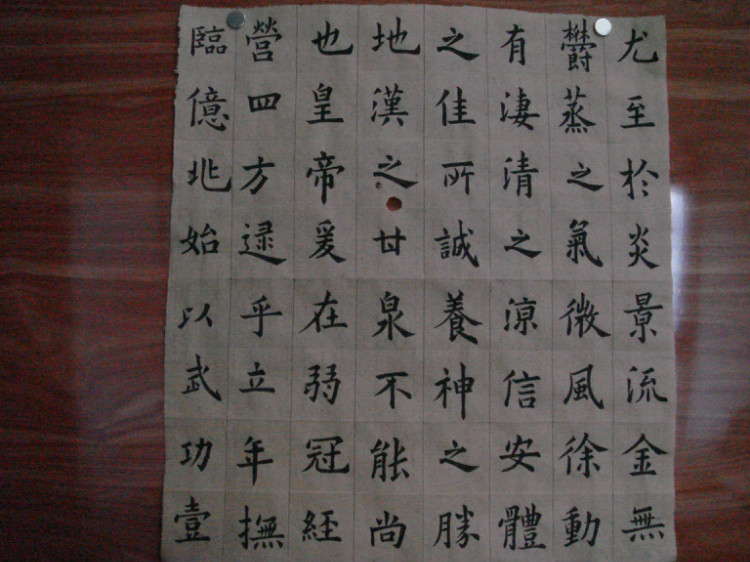 尤至於炎景流金無
鬱蒸之氣微風徐動
有淒清之涼信安體
之佳所誠養神之勝
地漢之甘泉不能尚
也皇帝爰在弱冠經
營四方逮乎立年撫
臨億兆始以武功壹